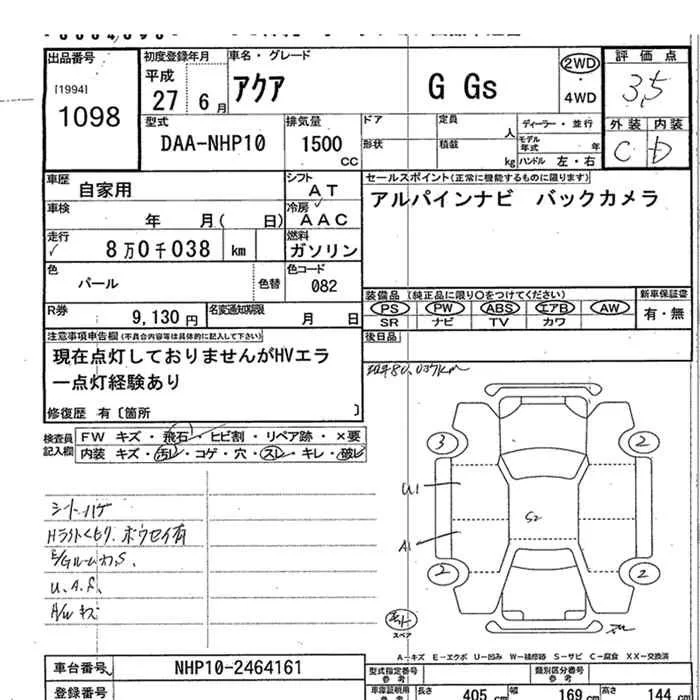 出品番号 初度登録年月 車名・グレード 評価点
[1994] 平成 アクア G Gs 2WD 3,5
1098 27 6月 4WD
型式 排気量 ドア 定員 人 ディーラー・並行 外装 内装
DAA-NHP10 1500 CC 形状 積載 kg モデル年式 年 ハンドル 左・右 C D
車歴 自家用 シフト AT セールスポイント(正常に機能するものに限ります)
車検 年 月( 日) 冷房 AAC アルパインナビ バックカメラ
走行 8万0千038 km 燃料 ガソリン
色 パール 色替 色コード 082
装備品 (純正品に限り○をつけてください) 新車保証書
R券 9,130円 名変通知期限 月 日 PS PW ABS エアB AW 有・無
SR ナビ TV カワ
注意事項申告欄(不具合内容等は具体的に記入して下さい) 後日品
現在点灯しておりませんがHVエラ
ー点灯経験あり
修復歴 有〔箇所 〕
現车80,037km
検査員記入欄 FW キズ・飛石・ヒビ割・リペア跡・×要
内装 キズ・汚レ・コゲ・穴・スレ・キレ・破レ
3 2
U1
S2
A1
2 2
シートハゲ
Hライトくもり、ボウセイ有
U.A.S.
A/Wキズ
スペア
A-キズ E-エクボ U-凹み W-補修跡 S-サビ C-腐食 XX-交換済
車台番号 NHP10-2464161 型式指定番号 参考 類別区分番号 参考
登録番号 車庫証明用 参考 長さ 405 cm 幅 169 cm 高さ 144 cm